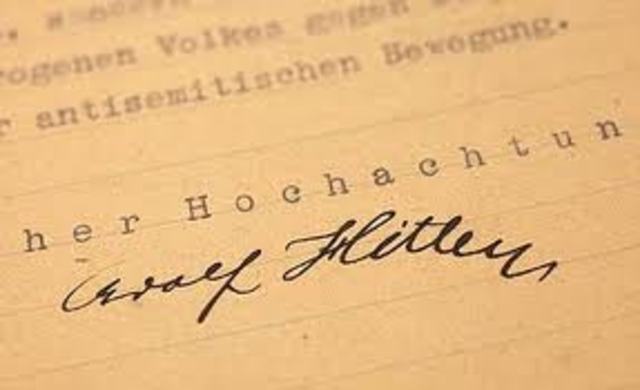 rogenen Volkes gegen
r antisemitischen Bewegung.
her Hochachtun
Adolf Hitler